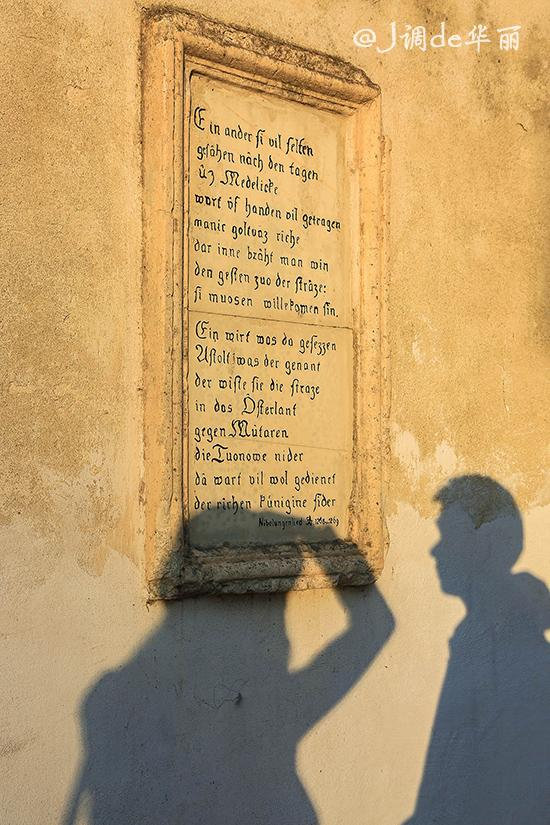 @J调de华丽
Ein ander si vil selten
gesâhen nâch den tagen
ûz Medelicke
wart ûf handen vil getragen
manic goltvaz riche
dar inne brâht man win
den gesten zuo der strâze:
si muosen willekomen sin.
Ein wirt was da gesezzen
Astolt was der genant
der wiste sie die straze
in das Ôsterlant
gegen Mûtaren
die Tuonowe nider
dâ wart vil wol gedienet
der richen künigine sider
Nibelungenlied 1268-1269